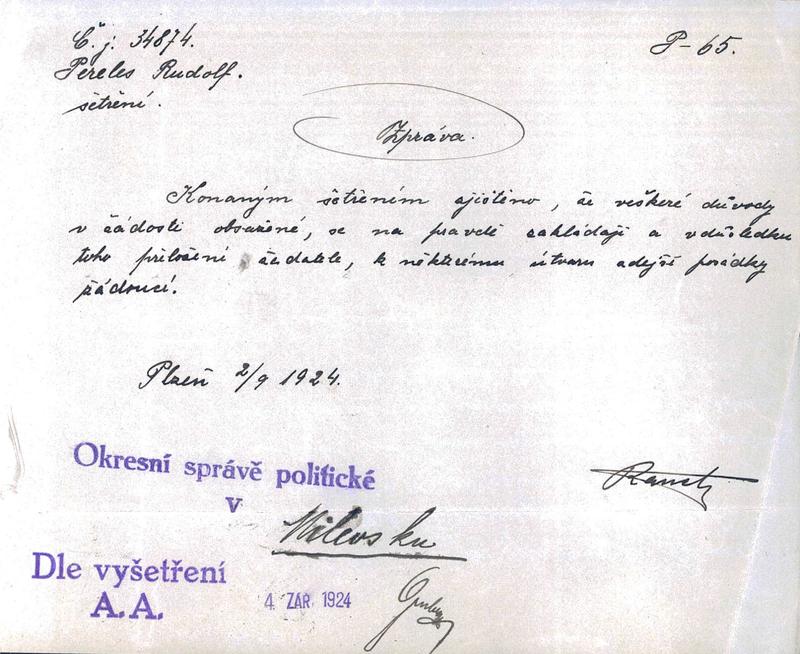 Č.j. 34874.
P-65.
Pereles Rudolf.
šetření.
Zpráva.
Konaným šetřením zjištěno, že veškeré důvody
v žádosti obsažené, se na pravdě zakládají a v důsledku
toho přiložení žadatele, k některému útvaru zdejší posádky
žádoucí.
Plzeň 2/9 1924.
Okresní správě politické
v
Milevsku
Dle vyšetření
A.A.
4. ZÁŘ. 1924